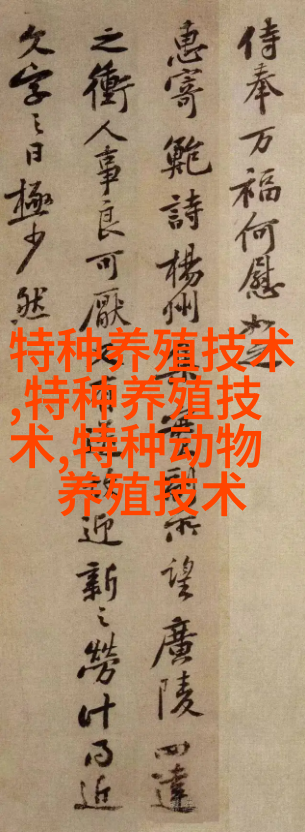 侍奉万福何慰如之
惠寄鲍詩楊州集
所望廣陵四達
之衝人事良可厭
迎新之勞計日近
久字之日極少然
特种养殖技术
,特种养殖技
术,特种动物
养殖技术